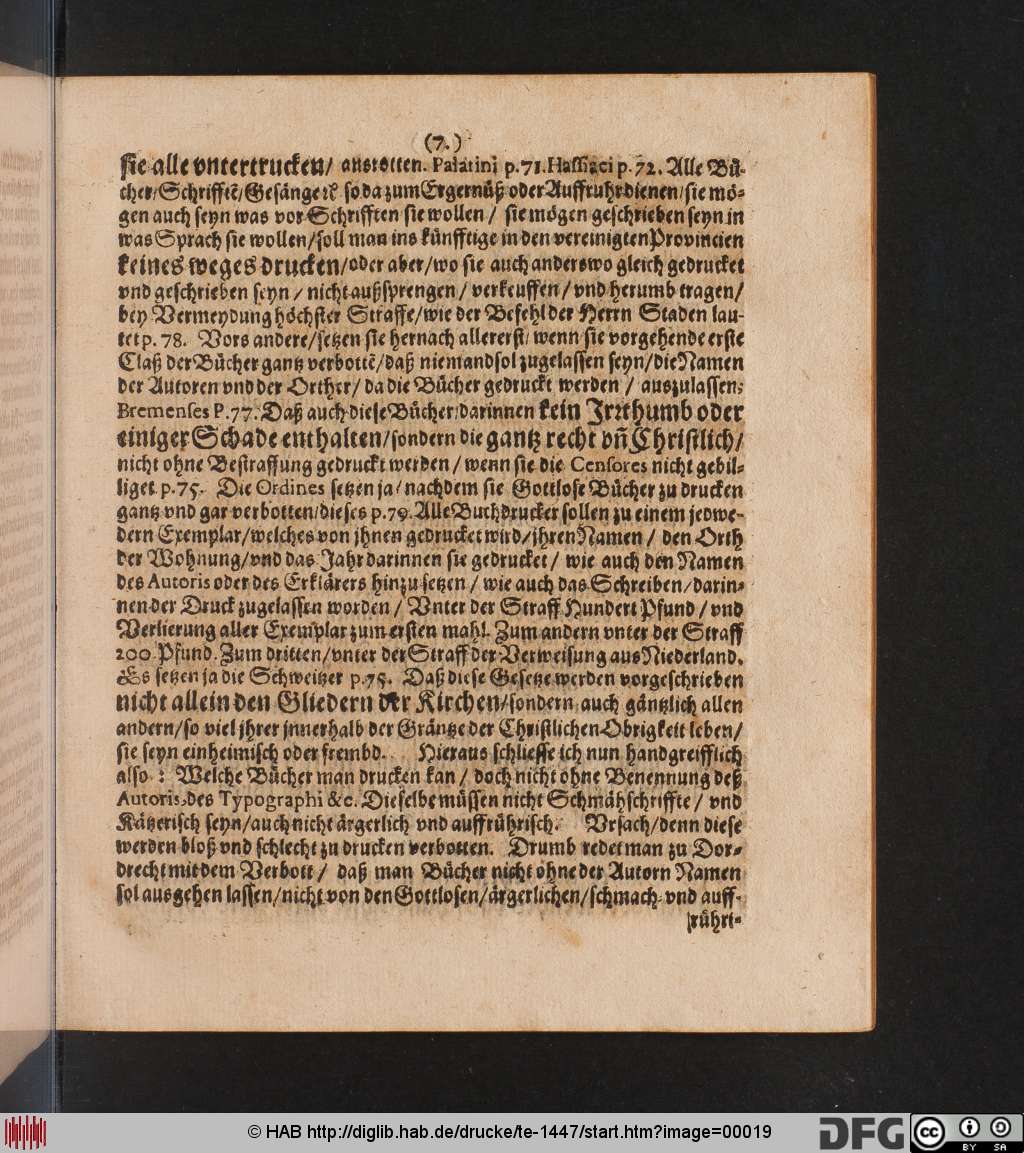 (7.)
sie alle vntertrucken/ ausrotten. Palatini p. 71. Hassiaci p. 72. Alle Bü-
cher/Schrifftē/Gesänge ꝛc̄ so da zum Ergernüß oder Auffruhr dienen/sie mö-
gen auch seyn was vor Schrifften sie wollen / sie mögen geschrieben seyn in
was Sprach sie wollen/soll man ins künfftige in den vereinigten Provincien
keines weges drucken/oder aber/wo sie auch anderswo gleich gedrucket
vnd geschrieben seyn / nicht außsprengen / verkeuffen / vnd herumb tragen/
bey Vermeydung höchster Straffe/wie der Befehl der Herrn Staden lau-
tet p. 78. Vors andere/setzen sie hernach allererst/ wenn sie vorgehende erste
Claß der Bücher gantz verbottē/daß niemand sol zugelassen seyn/die Namen
der Autoren vnd der Orther/ da die Bücher gedruckt werden / auszulassen;
Bremenses P. 77. Daß auch diese Bücher/darinnen kein Irrthumb oder
einiger Schade enthalten/sondern die gantz recht vñ Christlich/
nicht ohne Bestraffung gedruckt werden / wenn sie die Censores nicht gebil-
liget p. 75. Die Ordines setzen ja/ nachdem sie Gottlose Bücher zu drucken
gantz vnd gar verbotten/dieses p. 79. Alle Buchdrucker sollen zu einem jedwe-
dern Exemplar/welches von jhnen gedrucket wird/jhren Namen / den Orth
der Wohnung/vnd das Jahr darinnen sie gedrucket / wie auch den Namen
des Autoris oder des Erklärers hinzu setzen / wie auch das Schreiben/darin-
nen der Druck zugelassen worden / Vnter der Straff Hundert Pfund / vnd
Verlierung aller Exemplar zum ersten mahl. Zum andern vnter der Straff
200 Pfund. Zum dritten/vnter der Straff der Verweisung aus Niederland.
Es setzen ja die Schweitzer p. 75. Daß diese Gesetze werden vorgeschrieben
nicht allein den Gliedern der Kirchen/sondern auch gäntzlich allen
andern/so viel jhrer jnnerhalb der Gräntze der Christlichen Obrigkeit leben/
sie seyn einheimisch oder frembd. Hieraus schliesse ich nun handgreifflich
also : Welche Bücher man drucken kan / doch nicht ohne Benennung deß
Autoris, des Typographi &c. Dieselbe müssen nicht Schmähschriffte / vnd
Kätzerisch seyn/auch nicht ärgerlich vnd auffrührisch. Vrsach/denn diese
werden bloß vnd schlecht zu drucken verbotten. Drumb redet man zu Dor-
drecht mit dem Verbott / daß man Bücher nicht ohne der Autorn Namen
sol ausgehen lassen/nicht von den Gottlosen/ärgerlichen/schmach- vnd auff-
rühri-
© HAB http://diglib.hab.de/drucke/te-1447/start.htm?image=00019
DFG
cc BY SA